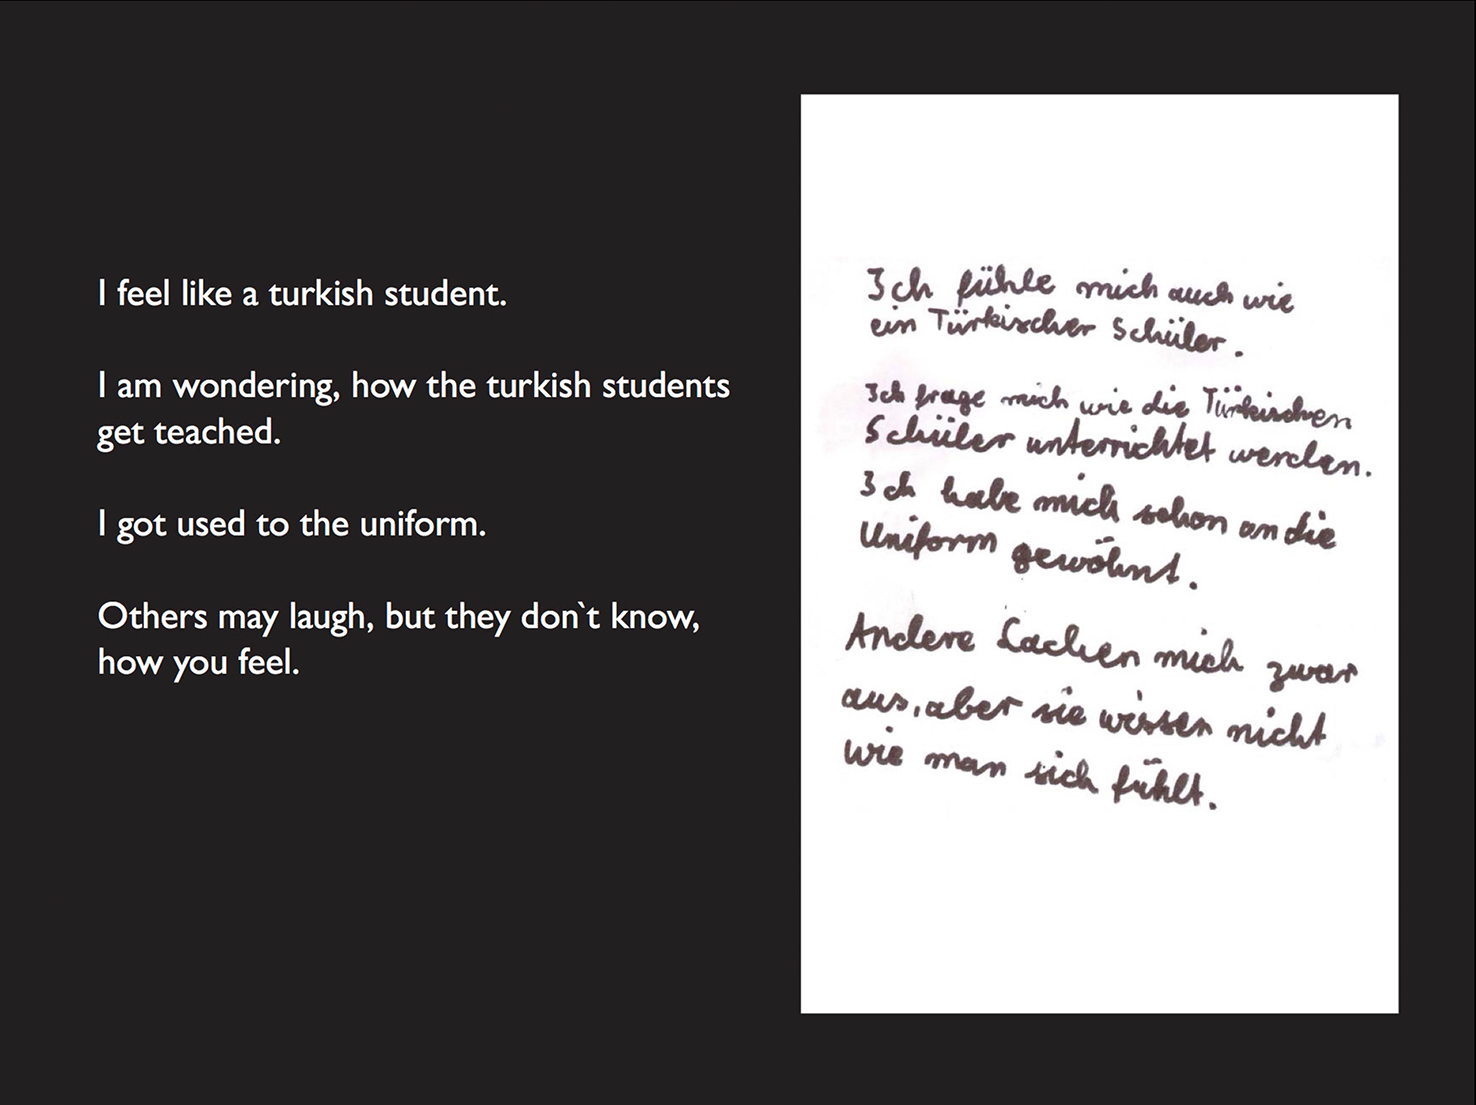 I feel like a turkish student.
I am wondering, how the turkish students
get teached.
I got used to the uniform.
Others may laugh, but they don`t know,
how you feel.
Ich fühle mich auch wie
ein Türkischer Schüler.
Ich frage mich wie die Türkischen
Schüler unterrichtet werden.
Ich habe mich schon an die
Uniform gewöhnt.
Andere Lachen mich zwar
aus, aber sie wissen nicht
wie man sich fühlt.